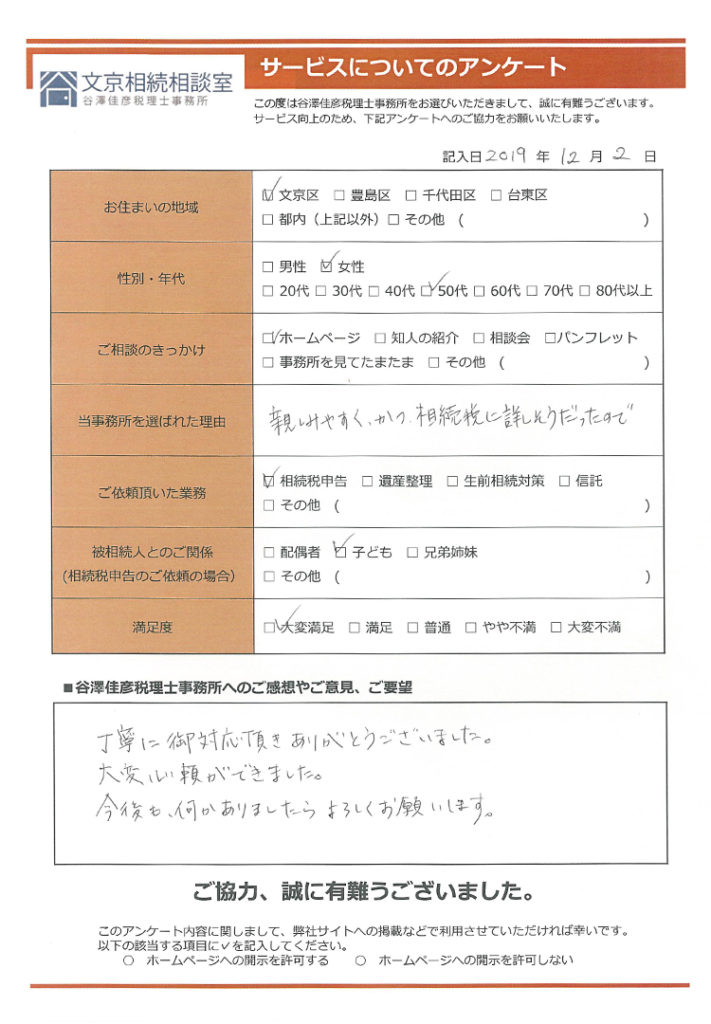 文京相続相談室
谷澤佳彦税理士事務所
サービスについてのアンケート
この度は谷澤佳彦税理士事務所をお選びいただきまして、誠に有難うございます。
サービス向上のため、下記アンケートへのご協力をお願いいたします。
記入日2019 年 12 月 2 日
お住まいの地域
☑ 文京区 □ 豊島区 □ 千代田区 □ 台東区
□ 都内（上記以外）□ その他 （ ）
性別・年代
□ 男性 ☑ 女性
□ 20代 □ 30代 □ 40代 ☑ 50代 □ 60代 □ 70代 □ 80代以上
ご相談のきっかけ
☑ ホームページ □ 知人の紹介 □ 相談会 □パンフレット
□ 事務所を見てたまたま □ その他 （ ）
当事務所を選ばれた理由
親しみやすく、かつ、相続税に詳しそうだったので
ご依頼頂いた業務
☑ 相続税申告 □ 遺産整理 □ 生前相続対策 □ 信託
□ その他 （ ）
被相続人とのご関係
(相続税申告のご依頼の場合)
□ 配偶者 ☑ 子ども □ 兄弟姉妹
□ その他 （ ）
満足度
☑ 大変満足 □ 満足 □ 普通 □ やや不満 □ 大変不満
■谷澤佳彦税理士事務所へのご感想やご意見、ご要望
丁寧に御対応頂きありがとうございました。
大変心頼ができました。
今後も、何かありましたらよろしくお願いします。
ご協力、誠に有難うございました。
このアンケート内容に関しまして、弊社サイトへの掲載などで利用させていただければ幸いです。
以下の該当する項目に✓を記入してください。
○ ホームページへの開示を許可する ○ ホームページへの開示を許可しない